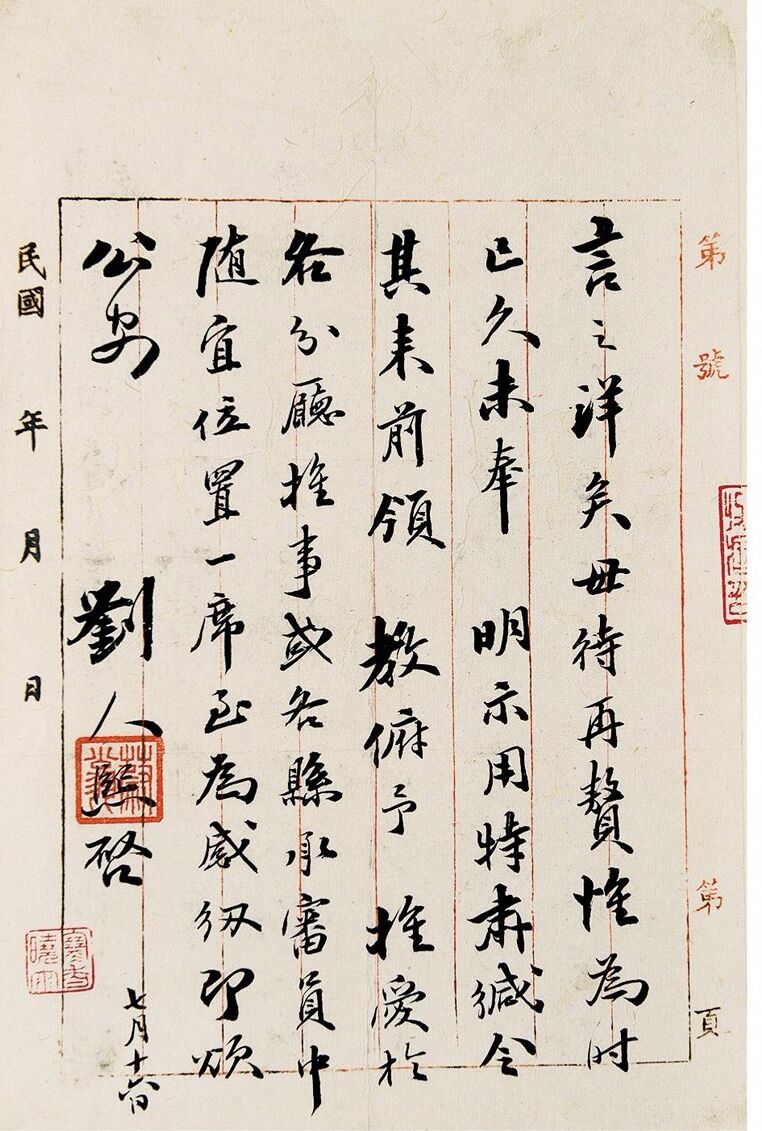 第 號 第 頁
言之詳矣毋待再贅惟為时
已久未奉 明示用特肅緘令
其来前領 教俯予 推愛於
各分廳推事或各縣承審員中
随宜位置一席至為感纫即颂
公安 劉人熙啓
七月十六日
民國 年 月 日